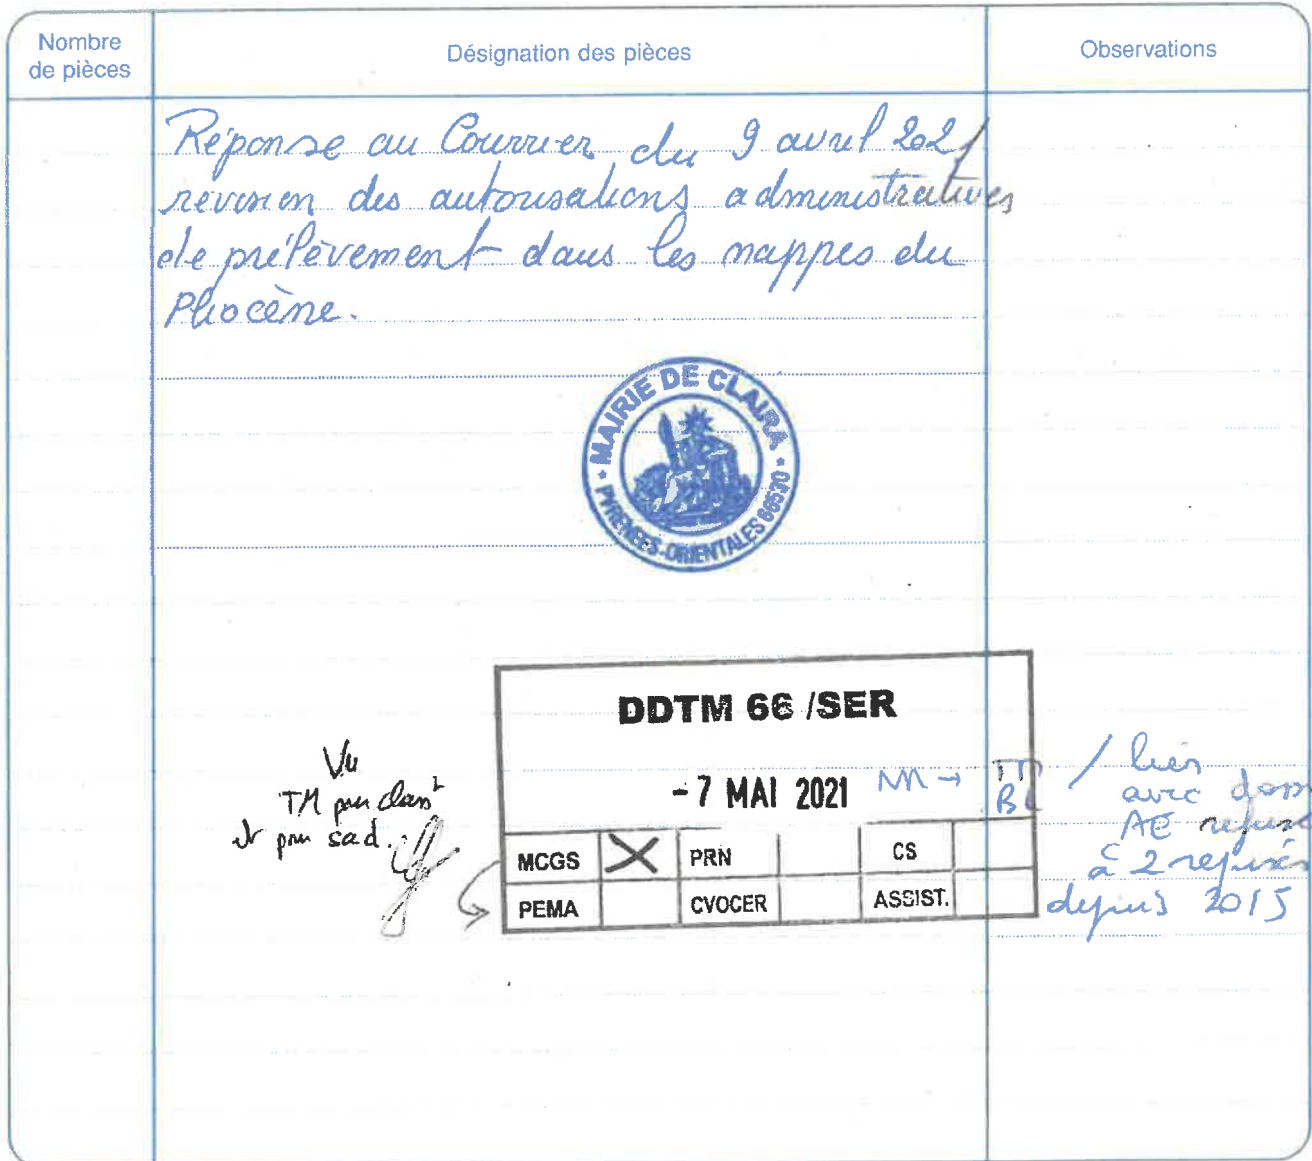 Nombre
de pièces
Désignation des pièces
Observations
Réponse au Courrier du 9 avril 2021
revision des autorisations administratives
de prélèvement dans les nappes du
Pliocène.
MAIRIE DE CLAIRA
PYRENEES-ORIENTALES 66530
DDTM 66 /SER
- 7 MAI 2021
MCGS X PRN CS
PEMA CVOCER ASSIST.
Vu
TM
NM → TM
BL
/ lien
avec
AE
à 2
depuis 2015